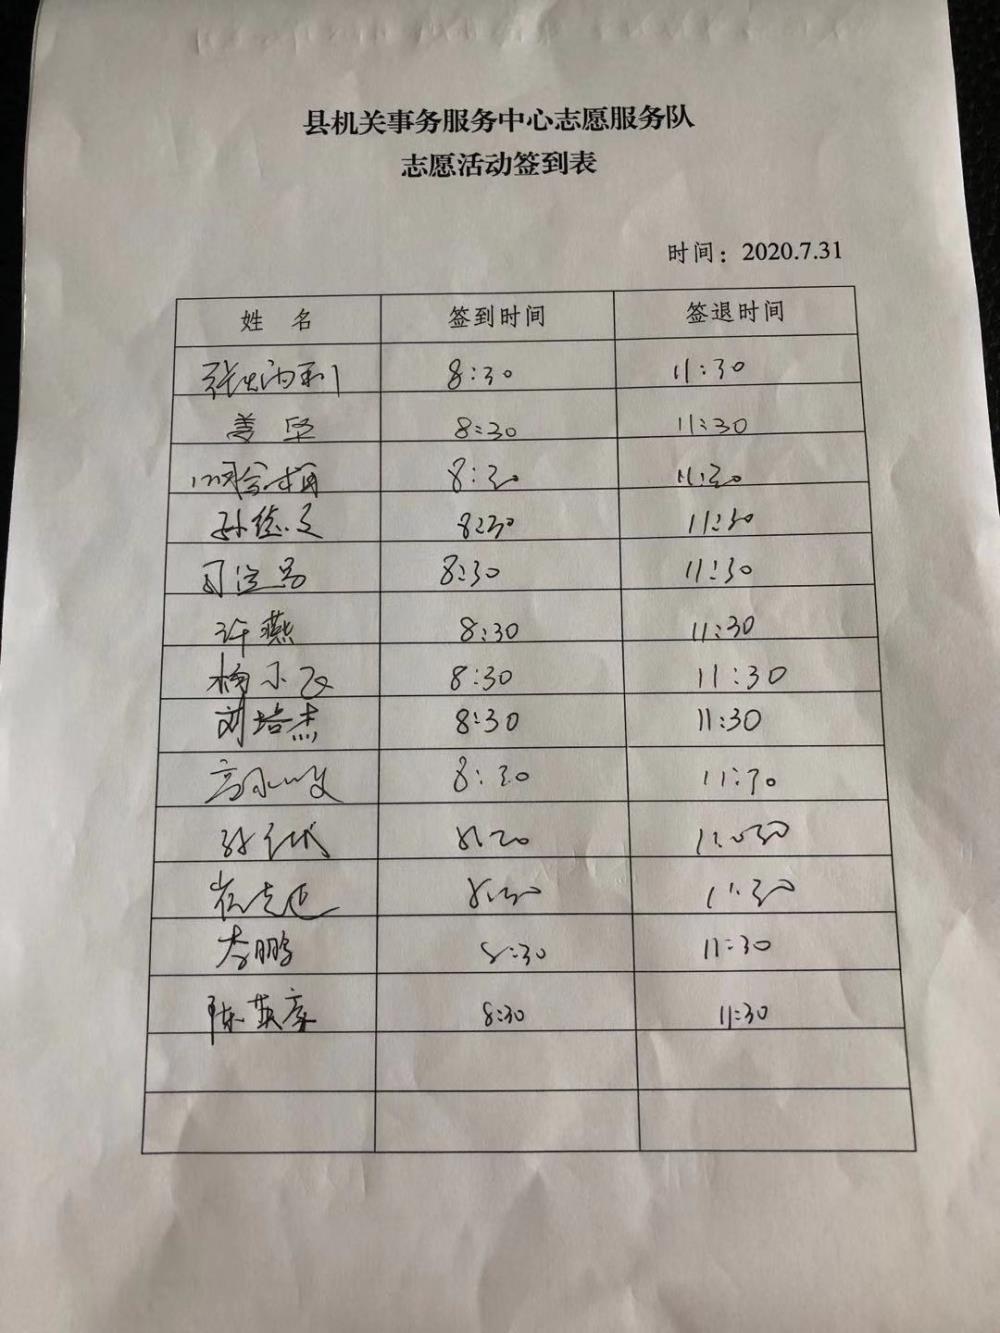 县机关事务服务中心志愿服务队
志愿活动签到表
时间：2020.7.31
姓 名 签到时间 签退时间
8:30 11:30
姜坚 8:30 11:30
8:30 11:30
8:30 11:30
8:30 11:30
许燕 8:30 11:30
杨小飞 8:30 11:30
刘培杰 8:30 11:30
8:30 11:30
8:30 11:30
8:30 11:30
李鹏 8:30 11:30
陈英彦 8:30 11:30